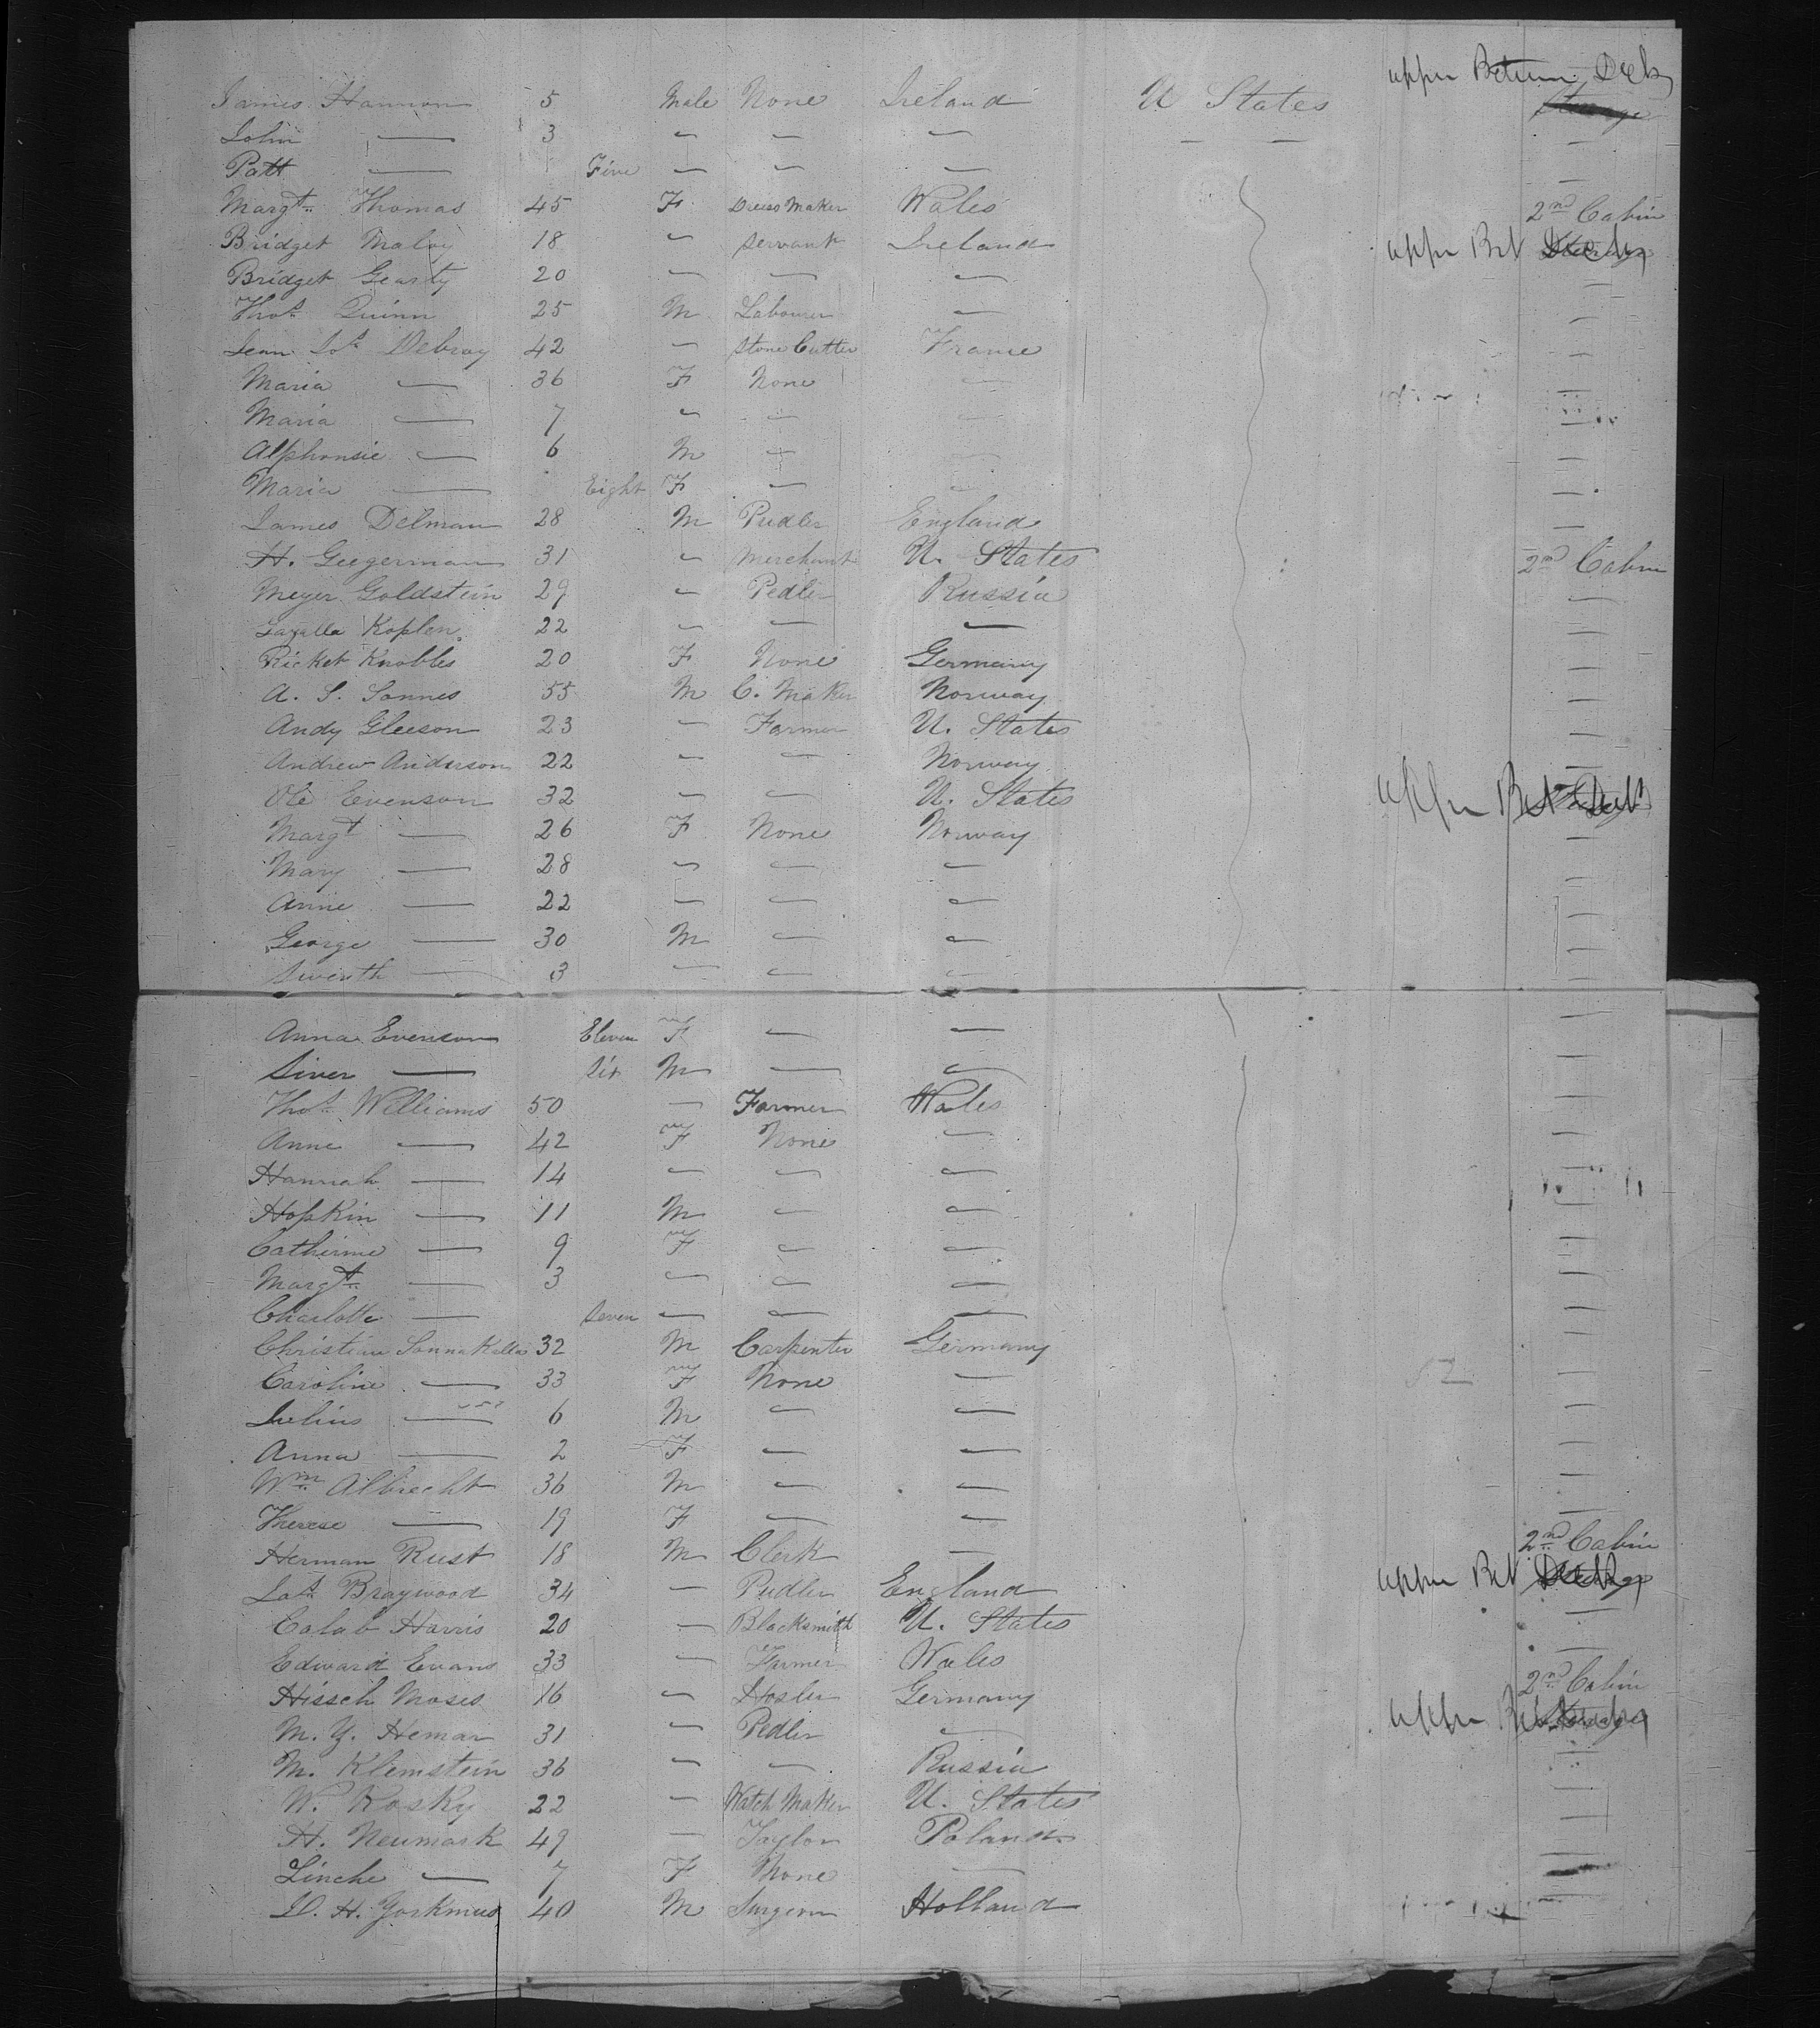 upper Between Decks
James Hannon 5 Male None Ireland U States Steerage
John — 3 — — — — —
Patt — Five — — — —
Margt. Thomas 45 F Dress Maker Wales 2nd Cabin
Bridget Maloy 18 — Servant Ireland upper Bet Decks
Bridget Gearty 20 — — — —
Thos. Quinn 25 M Labourer — —
Jean Jos. Debray 42 — Stone Cutter France —
Maria — 36 F None — —
Maria — 7 — — — —
Alphonsie — 6 M — — —
Maria — Eight F — — —
James Delman 28 M Pudler England —
H. Geegerman 31 — Merchant U. States 2nd Cabin
Meyer Goldstein 29 — Pedler Russia —
Koplen 22 — — — —
Ricket Knobles 20 F None Germany —
A. S. Sonnes 55 M C. Maker Norway —
Andy Gleeson 23 — Farmer U. States —
Andrew Anderson 22 — — Norway —
Ole Evenson 32 — — U. States upper Bet Decks
Margt — 26 F None Norway —
Mary — 28 — — — —
Anne — 22 — — — —
George — 30 M — — —
— 3 — — — —
Anna Evenson Eleven F — — —
Siver — Six M — — —
Thos. Williams 50 — Farmer Wales —
Anne — 42 F None — —
Hannah — 14 — — — —
Hopkin — 11 M — — —
Catherine — 9 F — — —
Margt. — 3 — — — —
Charlotte — Seven — — — —
Christian Sonnakalla 32 M Carpenter Germany —
Caroline — 33 F None — 52 —
Julius — 6 M — — —
Anna — 2 F — — —
Wm. Albrecht 36 M — — —
Therese — 19 F — — —
Herman Rust 18 M Clerk — 2nd Cabin
Jas. Braywood 34 — Pudler England upper Bet Decks
Calab Harris 20 — Blacksmith U. States —
Edward Evans 33 — Farmer Wales —
Hissch Moses 16 — Hosler Germany 2nd Cabin
M. Y. Heman 31 — Pedler — upper Bet Decks
M. Klemstein 36 — — Russia —
W. Kosky 22 — Watch Maker U. States —
H. Neumark 49 — Taylor Poland —
Linche — 7 F None — —
D. H. Yorkmus 40 M Surgeon Holland —